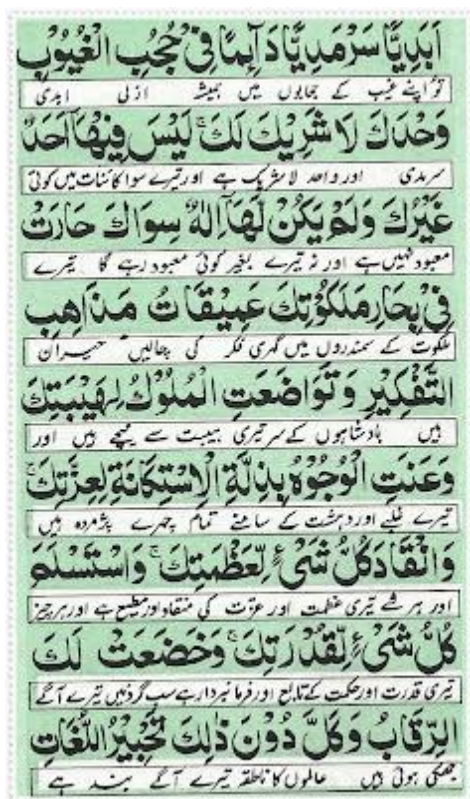 اَبَدِيًّا سَرْمَدِيًّا دَآئِمًا فِىْ حُجُبِ الْغُيُوْبِ
تو اپنے غیب کے حجابوں میں ہمیشہ ازلی ابدی
وَحْدَكَ لَا شَرِيْكَ لَكَ لَيْسَ فِيْهَآ اَحَدٌ
سرمدی اور واحد لا شریک ہے اور تیرے سوا کائنات میں کوئی
غَيْرُكَ وَلَمْ يَكُنْ لَّهَآ اِلٰهٌ سِوَاكَ حَارَتْ
معبود نہیں ہے اور نہ تیرے بغیر کوئی معبود رہے گا تیرے
فِىْ بِحَارِ مَلَكُوْتِكَ عَمِيْقَاتُ مَذَاهِبِ
ملکوت کے سمندروں میں گہری فکر کی چالیں حیران
التَّفْكِيْرِ وَتَوَاضَعَتِ الْمُلُوْكُ لِهَيْبَتِكَ
ہیں بادشاہوں کے سر تیری ہیبت سے نیچے ہیں اور
وَعَنَتِ الْوُجُوْهُ بِذِلَّةِ الْاِسْتِكَانَةِ لِعِزَّتِكَ
تیرے غلبے اور دہشت کے سامنے تمام چہرے پژمردہ ہیں
وَانْقَادَ كُلُّ شَىْءٍ لِّعَظَمَتِكَ وَاسْتَسْلَمَ
اور ہر شے تیری عظمت اور عزت کی منقاد اور مطیع ہے اور ہر چیز
كُلُّ شَىْءٍ لِّقُدْرَتِكَ وَخَضَعَتْ لَكَ
تیری قدرت اور حکمت کے تابع اور فرمانبردار ہے سب گردنیں تیرے آگے
الرِّقَابُ وَكَلَّ دُوْنَ ذٰلِكَ تَحْبِيْرُ اللُّغَاتِ
جھکی ہوئی ہیں عالموں کا ناطقہ تیرے آگے بند ہے